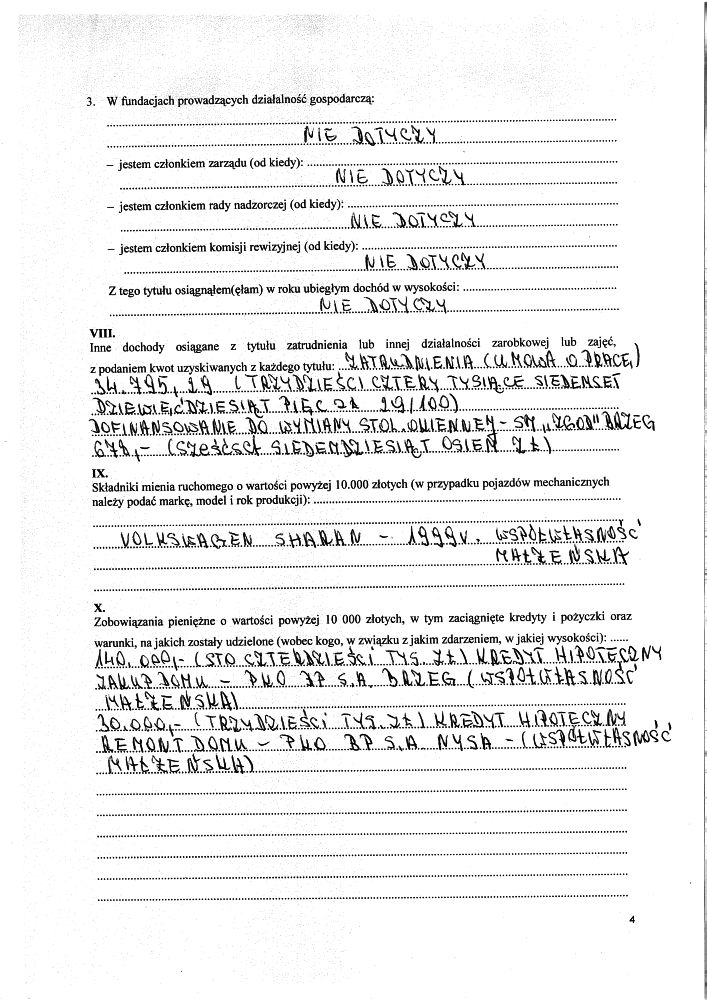 3. W fundacjach prowadzących działalność gospodarczą:
NIE DOTYCZY
– jestem członkiem zarządu (od kiedy):
NIE DOTYCZY
– jestem członkiem rady nadzorczej (od kiedy):
NIE DOTYCZY
– jestem członkiem komisji rewizyjnej (od kiedy):
NIE DOTYCZY
Z tego tytułu osiągnąłem(ęłam) w roku ubiegłym dochód w wysokości:
NIE DOTYCZY
VIII.
Inne dochody osiągane z tytułu zatrudnienia lub innej działalności zarobkowej lub zajęć,
z podaniem kwot uzyskiwanych z każdego tytułu: ZATRUDNIENIA (UMOWA O PRACĘ)
34.795,29 (TRZYDZIEŚCI CZTERY TYSIĄCE SIEDEMSET
DZIEWIĘĆDZIESIĄT PIĘĆ ZŁ 29/100)
DOFINANSOWANIE DO WYMIANY STOL. OKIENNEJ - SM "ZGODA" BRZEG
678,- (SZEŚĆSET SIEDEMDZIESIĄT OSIEM ZŁ)
IX.
Składniki mienia ruchomego o wartości powyżej 10.000 złotych (w przypadku pojazdów mechanicznych
należy podać markę, model i rok produkcji):
VOLKSWAGEN SHARAN - 1999r. WSPÓŁWŁASNOŚĆ
MAŁŻEŃSKA
X.
Zobowiązania pieniężne o wartości powyżej 10 000 złotych, w tym zaciągnięte kredyty i pożyczki oraz
warunki, na jakich zostały udzielone (wobec kogo, w związku z jakim zdarzeniem, w jakiej wysokości):
140.000,- (STO CZTERDZIEŚCI TYS. ZŁ) KREDYT HIPOTECZNY
ZAKUP DOMU - PKO BP S.A. BRZEG (WSPÓŁWŁASNOŚĆ
MAŁŻEŃSKA)
30.000,- (TRZYDZIEŚCI TYS. ZŁ) KREDYT HIPOTECZNY
REMONT DOMU - PKO BP S.A NYSA - (WSPÓŁWŁASNOŚĆ
MAŁŻEŃSKA)
4